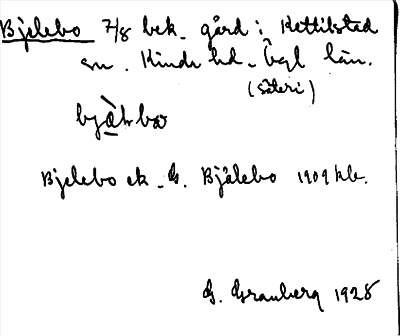 Bjelebo 7/8 bek. gård i Kettilstad
sn. Kinda hd. Ögl län.
(säteri)
Bjelebo ek. G. Bjälebo 1909 kb.
G. Granberg 1928